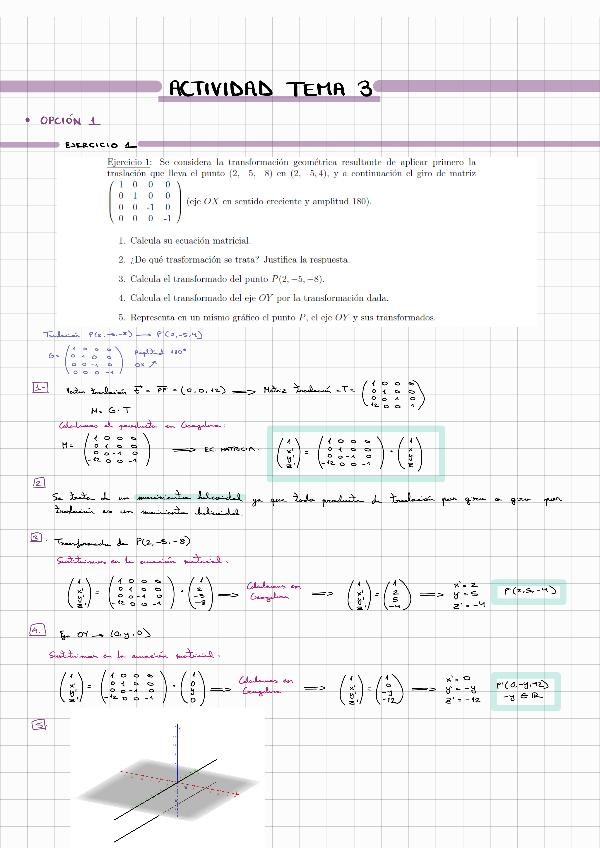 ACTIVIDAD TEMA 3
• OPCIÓN 1
EJERCICIO 1
Ejercicio 1: Se considera la transformación geométrica resultante de aplicar primero la
traslación que lleva el punto (2, -5, -8) en (2, -5,4), y a continuación el giro de matriz
1 0 0 0
0 1 0 0
0 0 -1 0
0 0 0 -1
(eje OX en sentido creciente y amplitud 180).
1. Calcula su ecuación matricial.
2. ¿De qué trasformación se trata? Justifica la respuesta.
3. Calcula el transformado del punto P(2, −5, −8).
4. Calcula el transformado del eje OY por la transformación dada.
5. Representa en un mismo gráfico el punto P, el eje OY y sus transformados.
Traslación P(2,-5,-8) → P'(2,-5,4)
G= 1 0 0 0
0 1 0 0
0 0 -1 0
0 0 0 -1
Amplitud 180°
OX ↗
1- Vector traslación t = PP' = (0,0,12) → Matriz Traslación = T =
1 0 0 0
0 1 0 0
0 0 1 0
12 0 0 1
M = G · T
Calculamos el producto en Geogebra:
M =
1 0 0 0
0 1 0 0
0 0 -1 0
-12 0 0 -1
⟹ EC. MATRICIAL:
2
Se trata de un movimiento helicoidal ya que todo producto de traslación por giro o giro por
traslación es un movimiento helicoidal.
3. Transformado de P(2,-5,-8)
Sustituimos en la ecuación matricial.
Calculamos en
Geogebra
x' = 2
y' = 5
z' = -4
P'(2,5,-4)
4. Eje OY → (0,y,0)
Sustituimos en la ecuación matricial.
Calculamos en
Geogebra
x' = 0
y' = -y
z' = -12
P'(0,-y,12)
-y ∈ ℝ
5